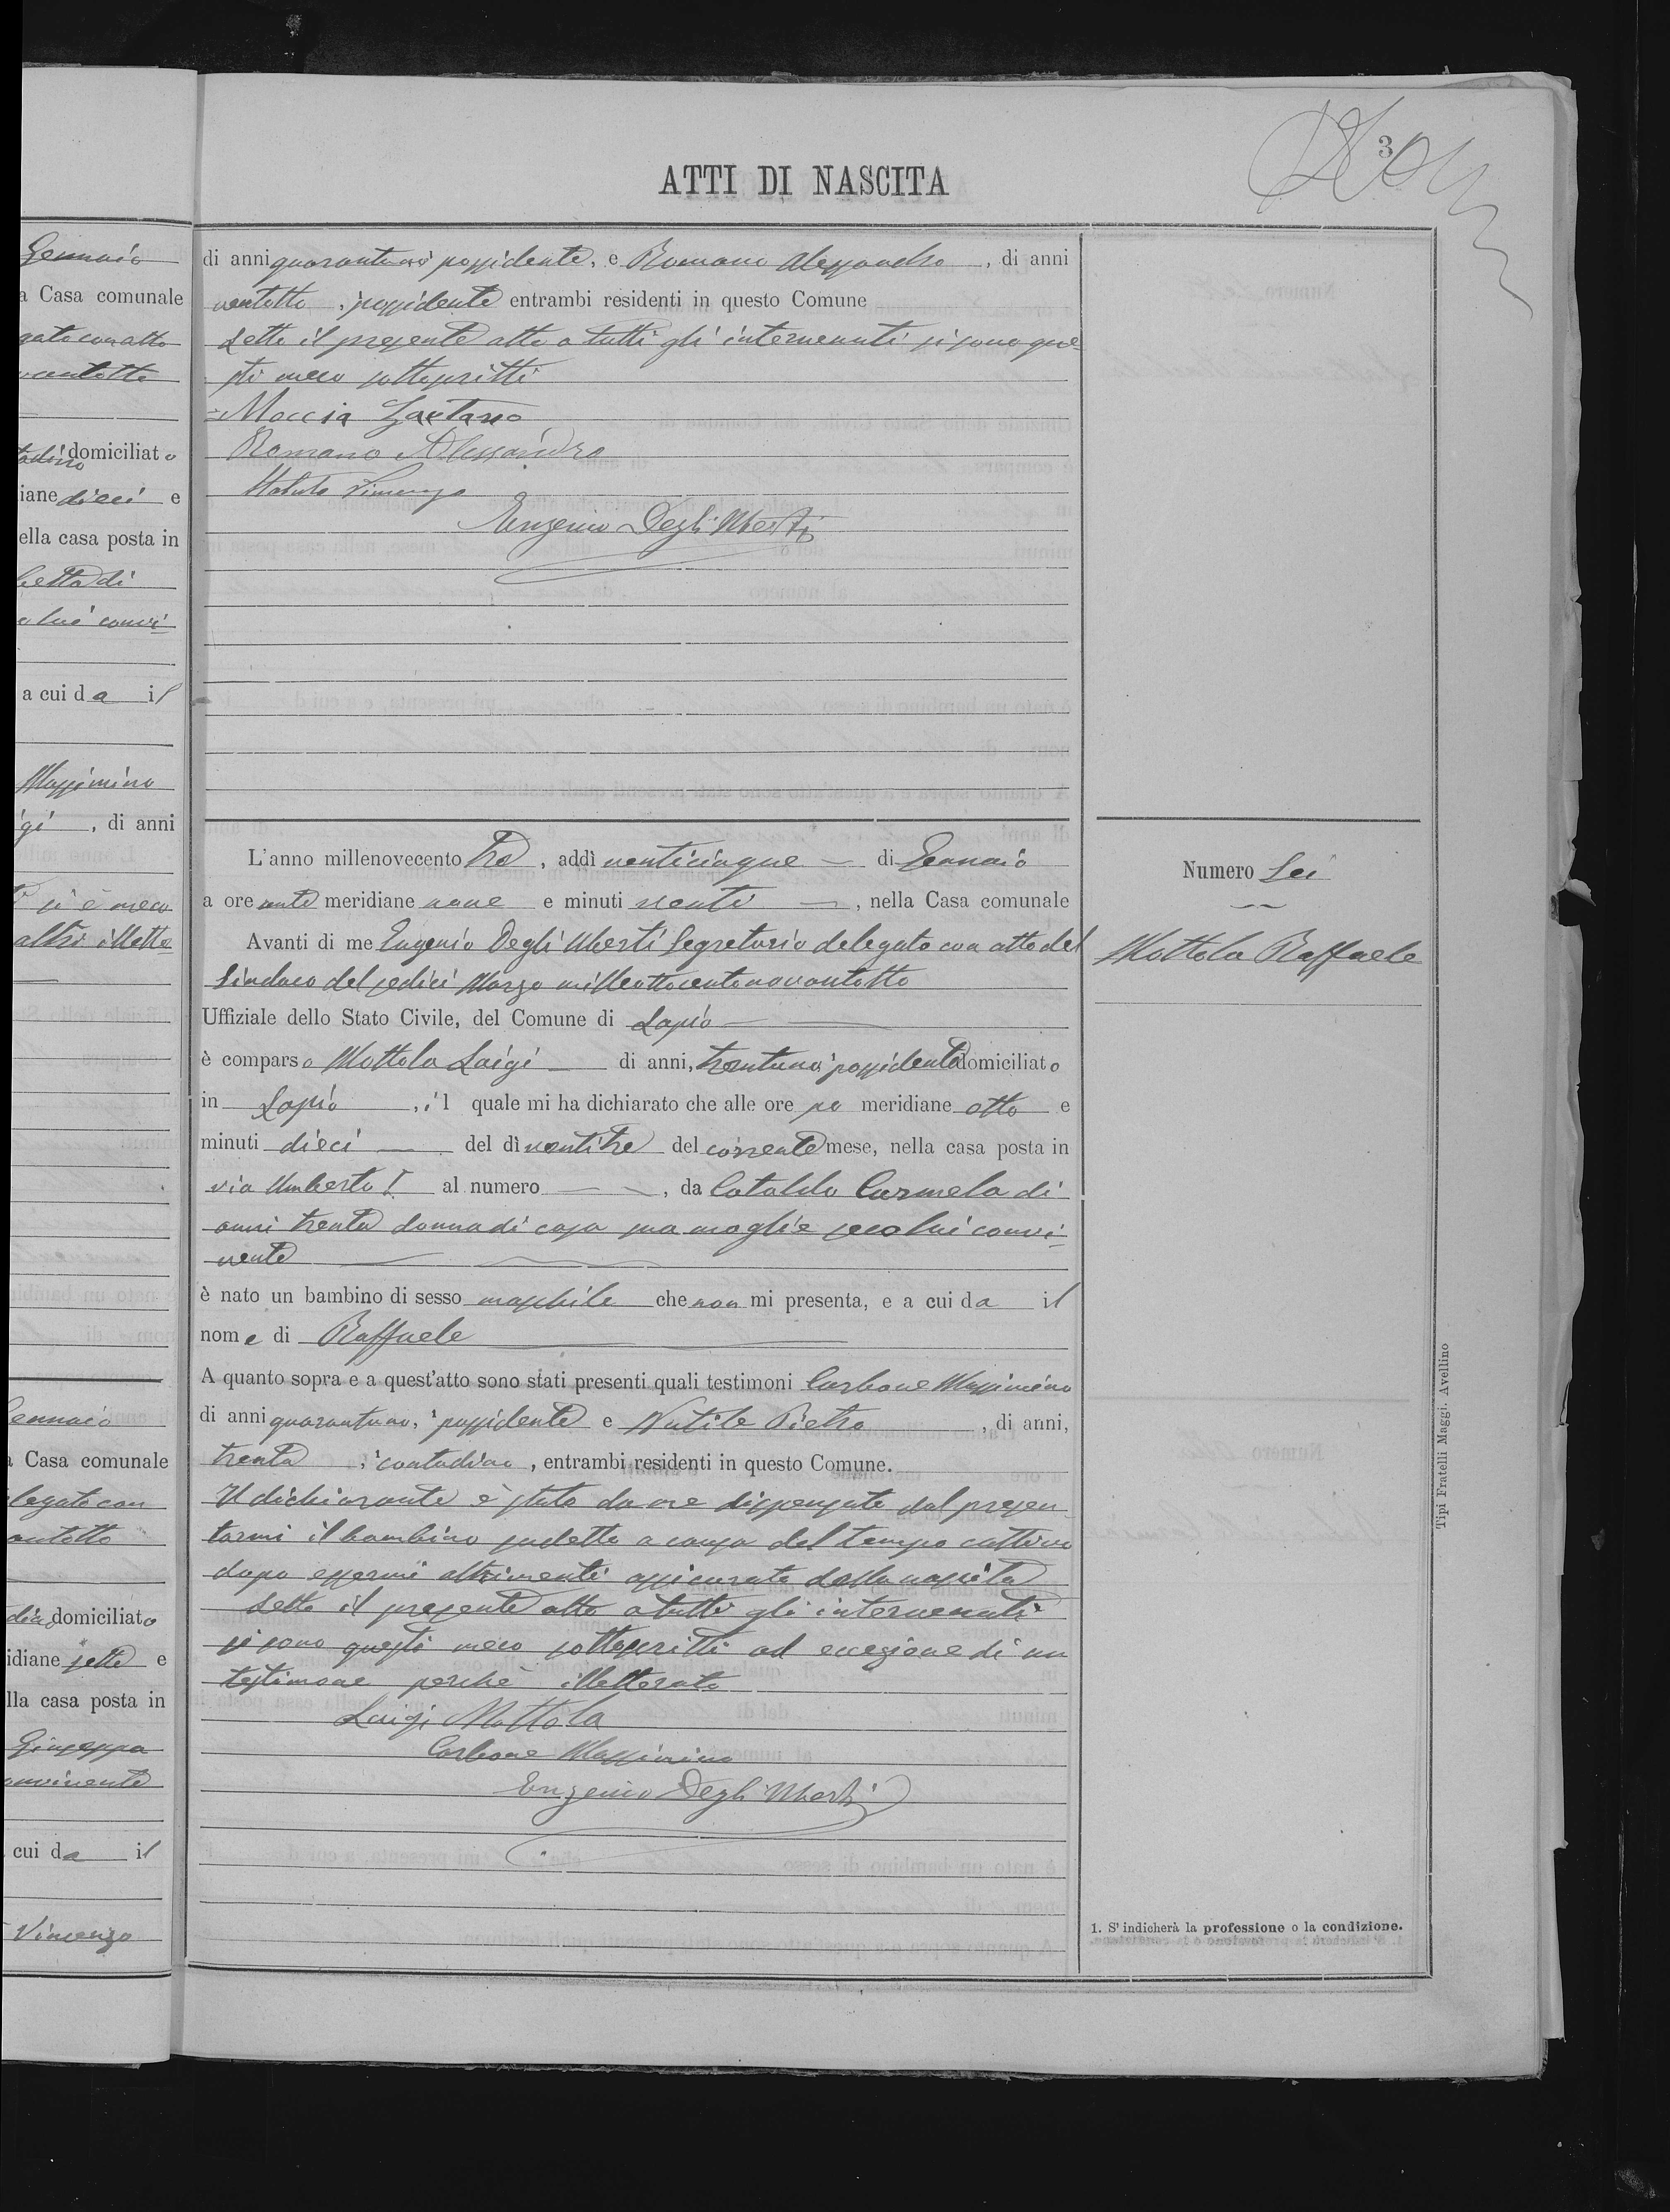 3
ATTI DI NASCITA
Gennaio
a Casa comunale
gato con atto
vantotto
tadino domiciliato
iane dieci e
ella casa posta in
betta di
o lui convi-
a cui da il
Massimino
igi, di anni
si è meco
altri illette-
Gennaio
a Casa comunale
legato con
antotto
domiciliato
idiane sette e
lla casa posta in
Giuseppa
onvivente
cui da il
Vincenzo
di anni quarantuno possidente, e Romano Alessandro, di anni
ventotto, possidente entrambi residenti in questo Comune
Letto il presente atto a tutti gli intervenuti si sono que-
sti meco sottoscritti
Moccia Gaetano
Romano Alessandro
Vincenzo
Eugenio Degli Uberti
L'anno millenovecento tre, addì venticinque di Gennaio
a ore ante meridiane nove e minuti venti, nella Casa comunale
Avanti di me Eugenio Degli Uberti Segretario delegato con atto del
Sindaco del sedici Marzo milleottocentonovantotto
Uffiziale dello Stato Civile, del Comune di Lapio
è comparso Mottola Luigi di anni, trentuno possidente domiciliato
in Lapio, il quale mi ha dichiarato che alle ore po meridiane otto e
minuti dieci del dì ventitre del corrente mese, nella casa posta in
via Umberto I al numero, da Cataldo Carmela di
anni trenta donna di casa sua moglie seco lui convi-
vente
è nato un bambino di sesso maschile che non mi presenta, e a cui da il
nome di Raffaele
A quanto sopra e a quest'atto sono stati presenti quali testimoni Carbone Massimino
di anni quarantuno, possidente e Nutile Pietro, di anni,
trenta, contadino, entrambi residenti in questo Comune.
Il dichiarante è stato da me dispensato dal presen
tarmi il bambino sudetto a causa del tempo cattivo
dopo essermi altrimenti assicurato della nascita
Letto il presente atto a tutti gli intervenuti
si sono questi meco sottoscritti ad eccezione di un
testimone perchè illetterato
Luigi Mottola
Carbone Massimino
Eugenio Degli Uberti
Numero Sei
Mottola Raffaele
1. S'indicherà la professione o la condizione.
Tipi Fratelli Maggi. Avellino